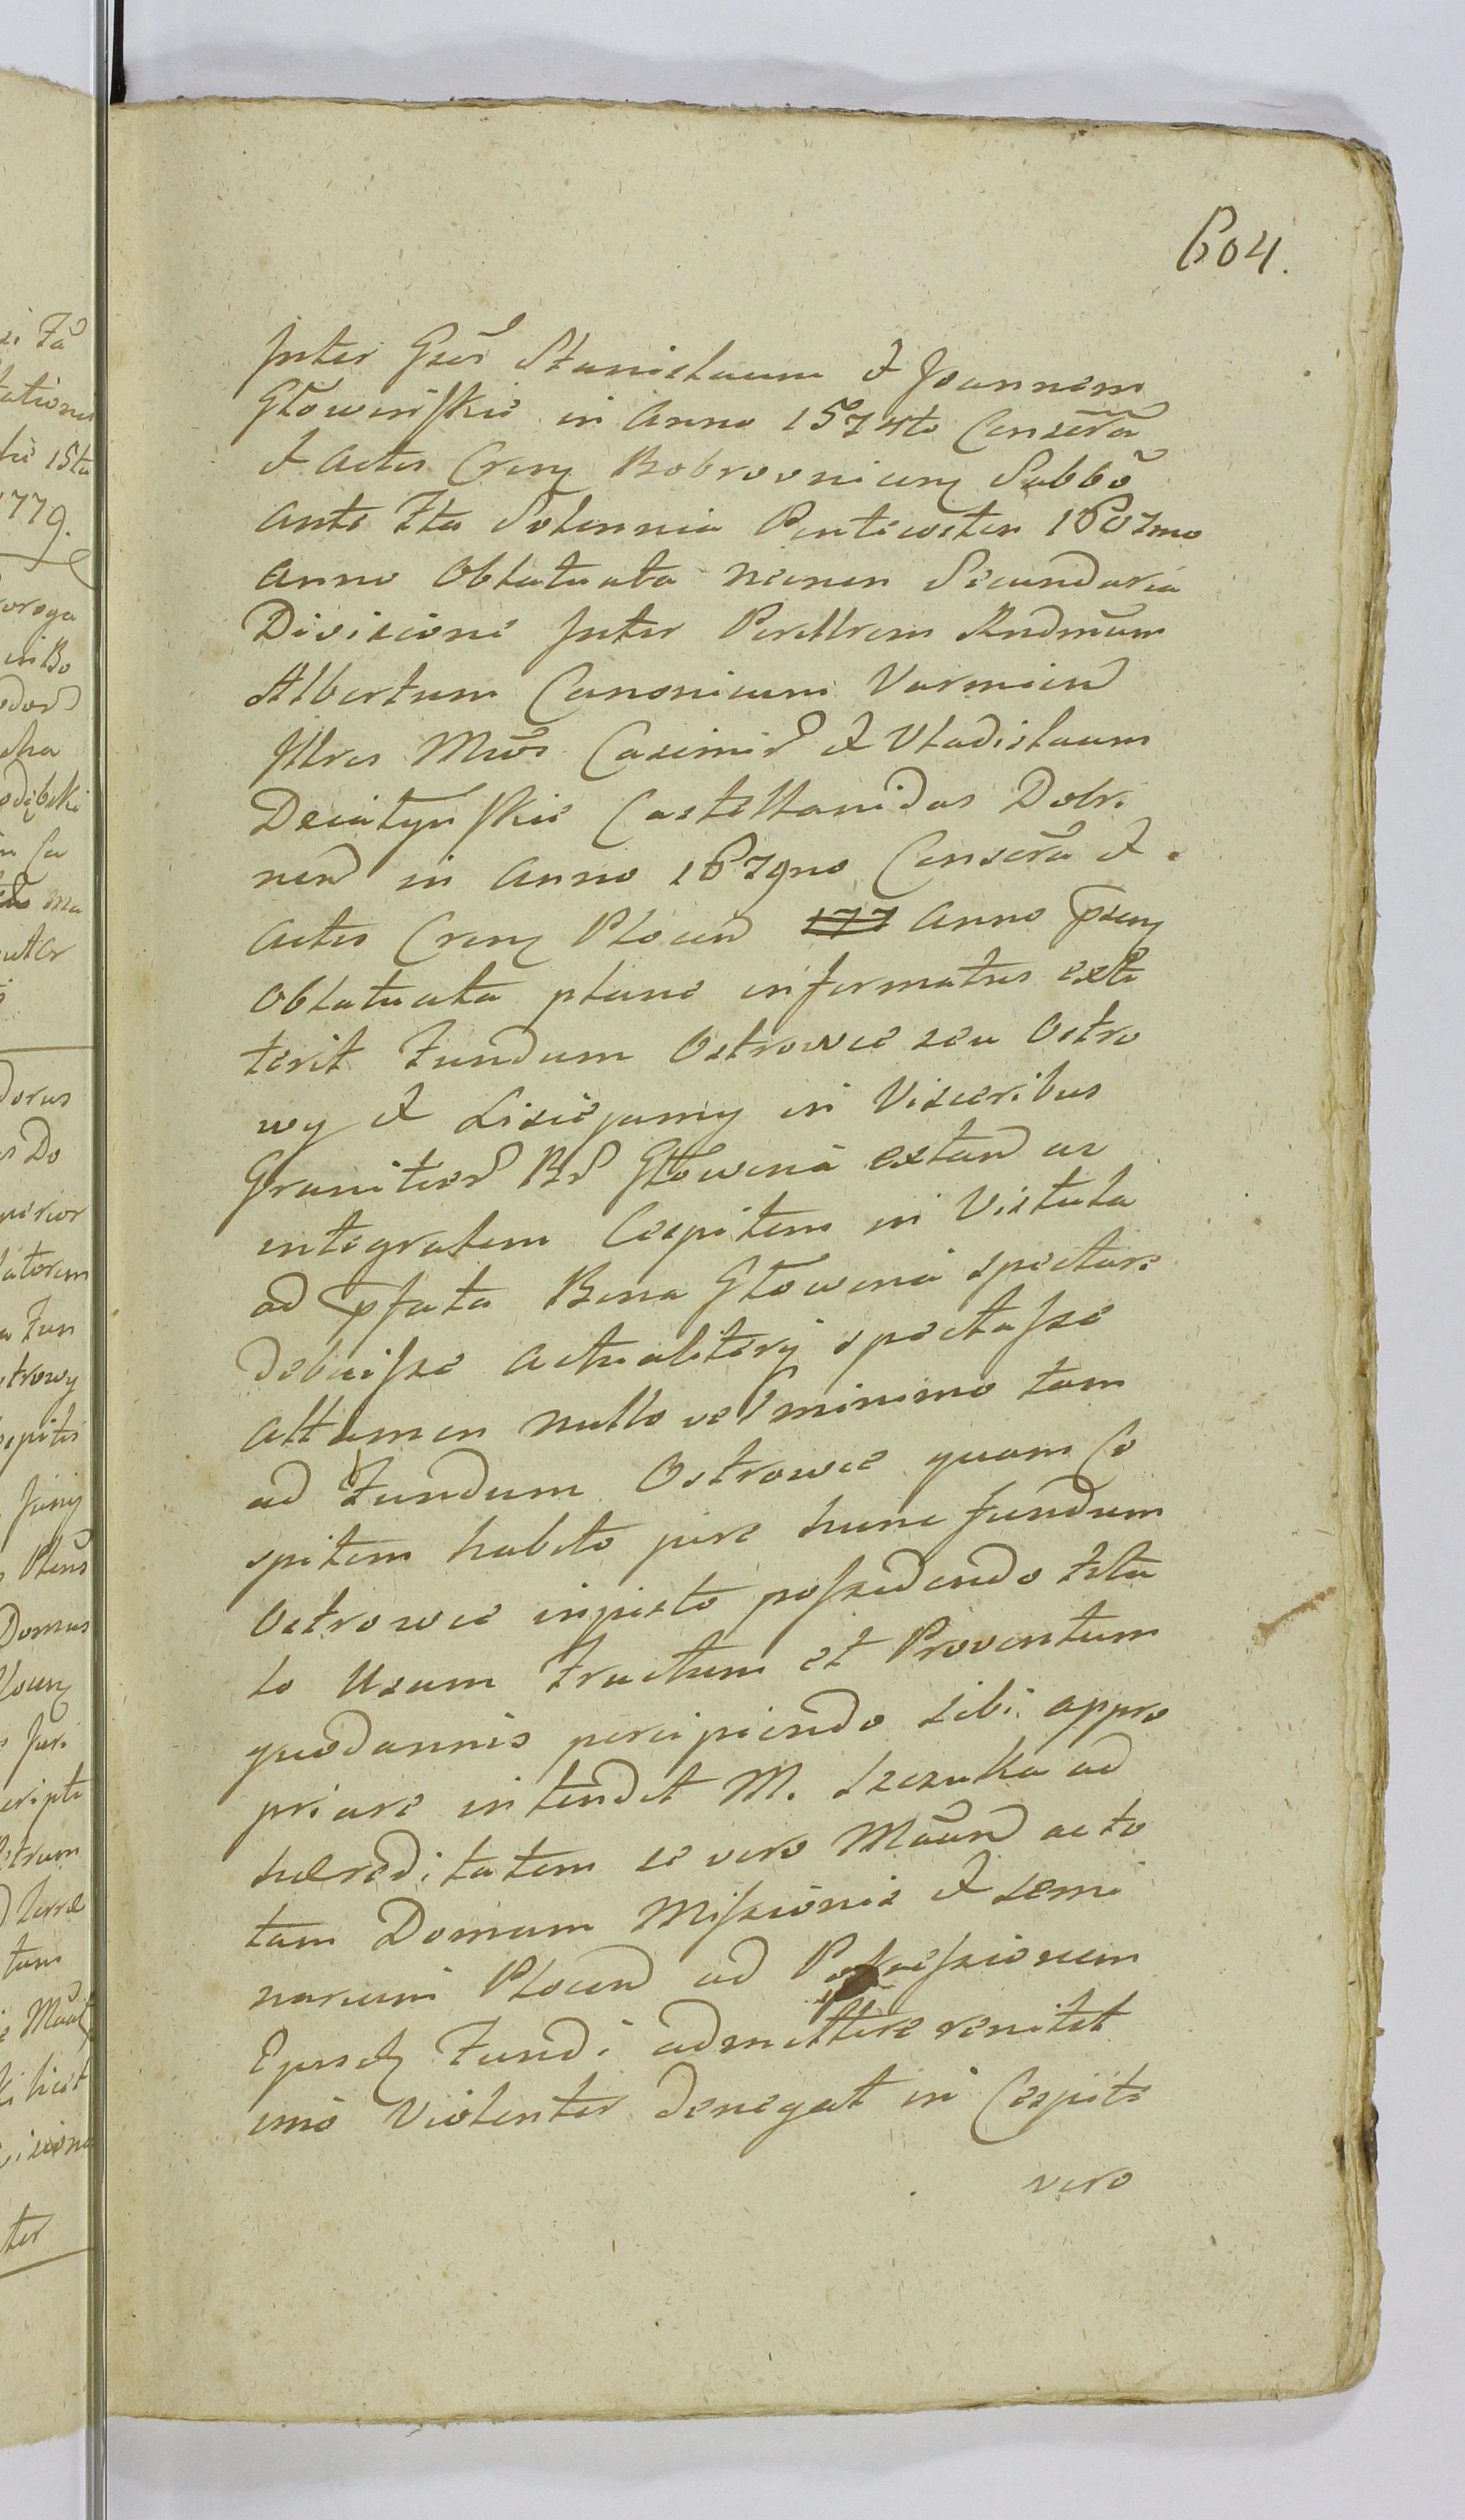 604.
Inter Gsos Stanislaum & Joannem
Głowinskie in Anno 1574to Conserta
& Actis Cren Bobrovnicen Sabbo
ante Fta Solennia Pentecosten 1607mo
Anno Oblatuata necnon Secundaria
Divisione Inter Perillrem Rndmum
Albertum Canonicum Varmien
Illres Mcos Casimir & Vladislaum
Działynskie Castellanidas Dobri
nen in Anno 1679no Conserta &
Actis Cren Plocen Anno
Oblatuata plane informatus exti
terit Fundum Ostrowce seu Ostro
wy & Lisiejamy in Visceribus
Granitier Br Głowina extan ac
integralem Cespitem in Vistula
ad pfata Bona Głowina spectare
debuisse actualiterq spectasse
Attamen nullo vel minimo tam
ad Fundum Ostrowce quam Ce
spitem habito jure hunc fundum
Ostrowce injusto possidendo titu
lo Usum Fructum et Proventum
quodannis percipiendo sibi appro
priare intendit M. Szczuka ad
hæreditatem se vero Maun acto
tam Domum Missionis & semi
narium Plocen ad Possessionem
Ejusd Fundi admittere renitet
imo Violenter denegat in Cespite
vero